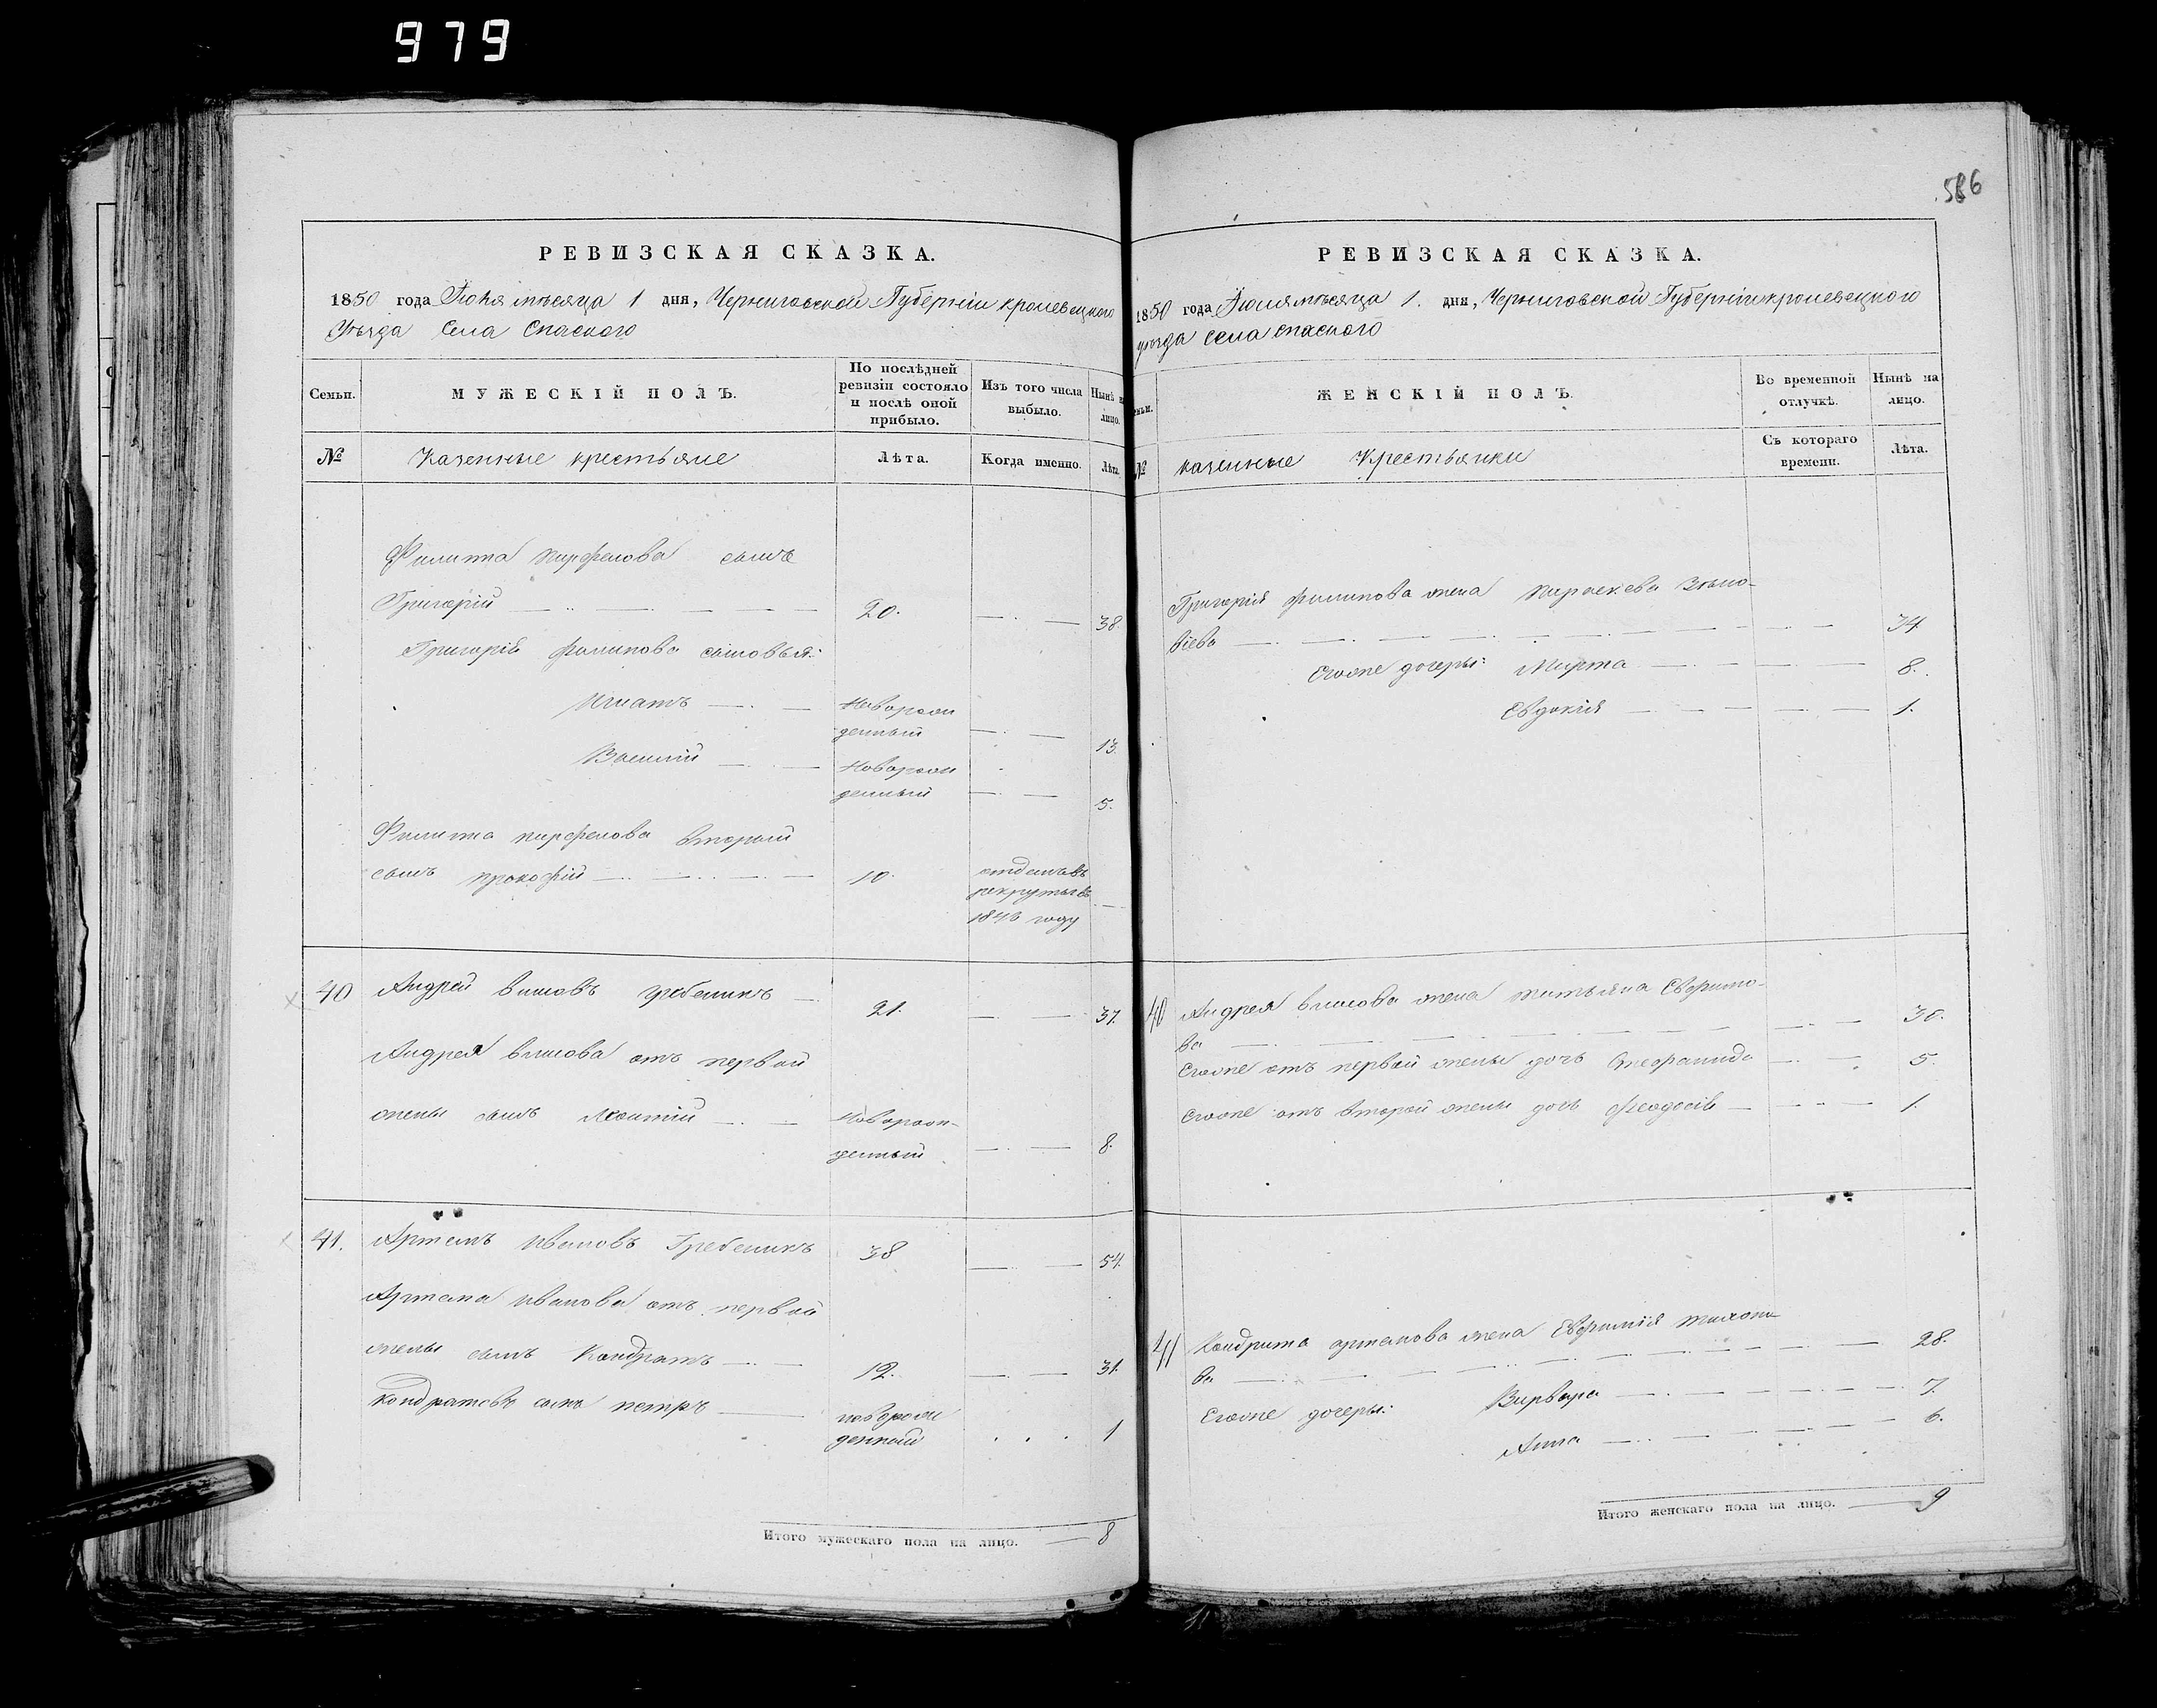 979
586
РЕВИЗСКАЯ СКАЗКА.
1850 года Июня мѣсяца 1 дня, Черниговской Губерніи кролевецкого
Уѣзда Села Спаского
Семьи.
МУЖЕСКІЙ ПОЛЪ.
По послѣдней ревизіи состояло и послѣ оной прибыло.
Изъ того числа выбыло.
Нынѣ на лицо.
№
Казенные крестьяне
Лѣта.
Когда именно.
Лѣта.
Филипа парфенова сынъ
Григорій 20. 38.
Григорія филипова сыновья:
Игнатъ Новорож
денный 13.
Василій Новорож
денный 5.
Филипа парфенова вторый
сынъ прокофій 10. отданъ въ
рекруты въ
году
40 Андрей власовъ гребеникъ 21. 37.
Андрея власова отъ первой
жены сынъ Леонтій Новорож-
денный 8.
41. Артемъ Ивановъ Гребеникъ 38 54.
Артема Иванова отъ первой
жены сынъ Кондратъ 12. 31.
Кондратовъ сынъ петръ новорож
денный 1
Итого мужескаго пола на лицо. 8
РЕВИЗСКАЯ СКАЗКА.
1850 года Июня мѣсяца 1. дня, Черниговской Губерніи кролевецкого
уѣзда села спаского
Семьи.
ЖЕНСКІЙ ПОЛЪ.
Во временной отлучкѣ.
Нынѣ на лицо.
№
казенные Крестьянки
Съ котораго времени.
Лѣта.
Григорія филипова жена параскева Зѣно-
віева 34.
Егоже дочеры: Марта 8.
Евдокія 1.
40 Андрея власова жена татьяна Ефримо-
ва 30.
Егоже отъ первой жены дочь Стефанида 5.
Егоже отъ второй жены дочь феодосія 1.
41 Кондрата артемова жена Евфимія тихоно
ва 28.
Егоже дочеры: Варвара 7.
Анна 6.
Итого женскаго пола на лицо. 9